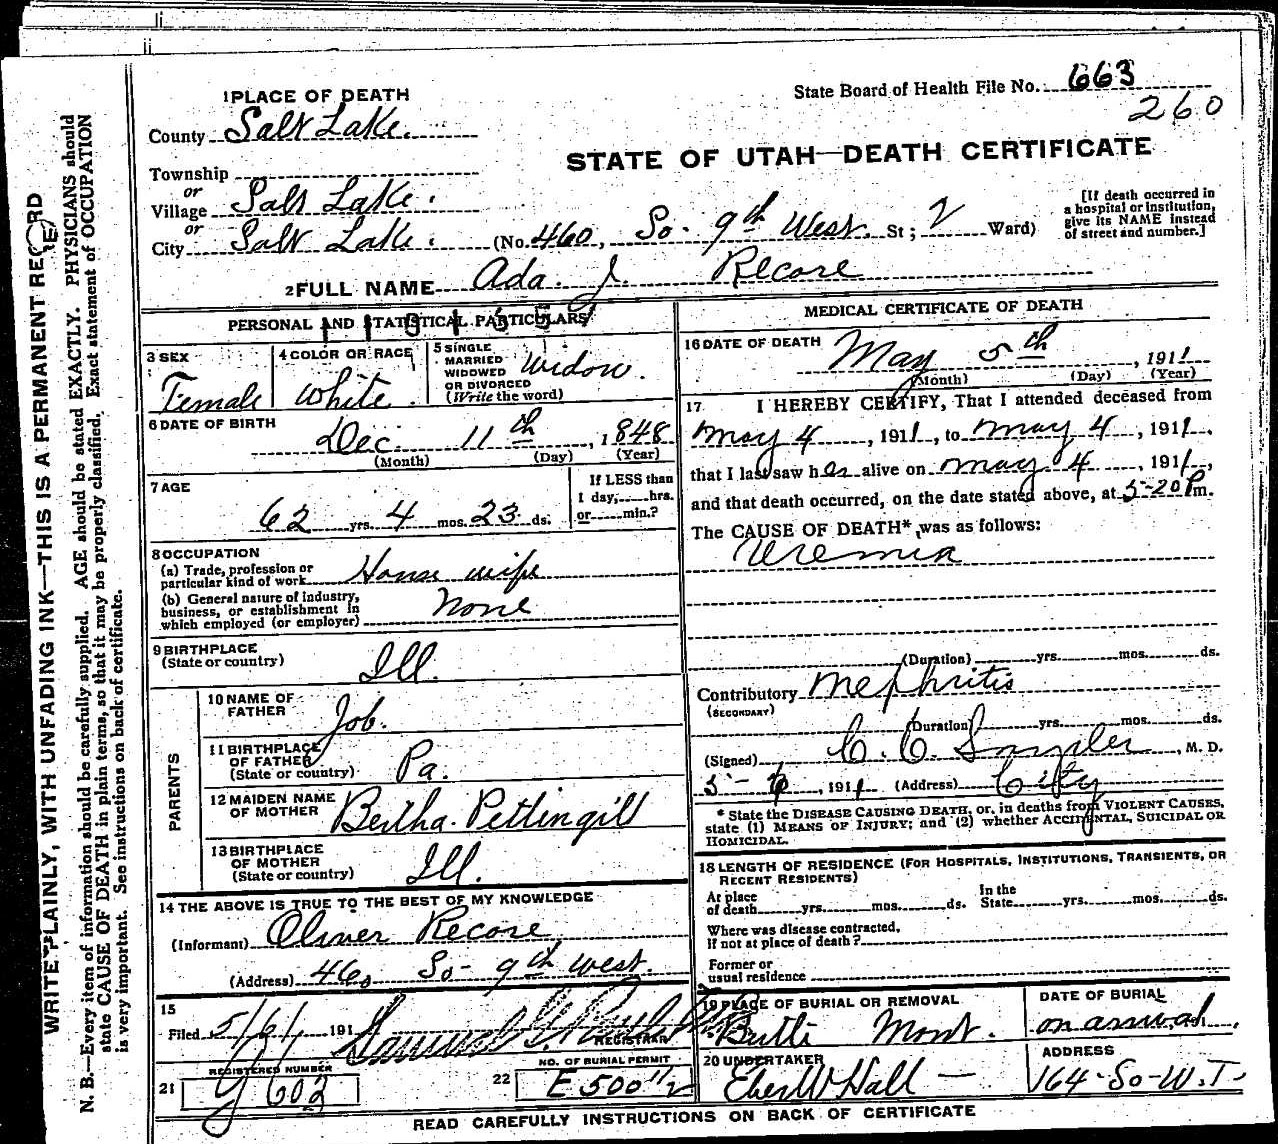 1 PLACE OF DEATH
State Board of Health File No. 663
260
County Salt Lake.
STATE OF UTAH—DEATH CERTIFICATE
Township
or
Village Salt Lake.
or
City Salt Lake. (No. 460, So. 9th West. St; 2 Ward)
[If death occurred in
a hospital or institution,
give its NAME instead
of street and number.]
2 FULL NAME Ada J. Recore
PERSONAL AND STATISTICAL PARTICULARS
3 SEX
Female
4 COLOR OR RACE
White.
5 SINGLE
MARRIED
WIDOWED
OR DIVORCED
(Write the word)
Widow.
6 DATE OF BIRTH
Dec. 11th, 1848
(Month) (Day) (Year)
7 AGE
62 yrs. 4 mos. 23 ds.
If LESS than
1 day, hrs.
or min.?
8 OCCUPATION
(a) Trade, profession or
particular kind of work House wife
(b) General nature of industry,
business, or establishment in
which employed (or employer) None
9 BIRTHPLACE
(State or country) Ill.
PARENTS
10 NAME OF
FATHER Job.
11 BIRTHPLACE
OF FATHER
(State or country) Pa.
12 MAIDEN NAME
OF MOTHER Bertha. Pettingill
13 BIRTHPLACE
OF MOTHER
(State or country) Ill.
14 THE ABOVE IS TRUE TO THE BEST OF MY KNOWLEDGE
(Informant) Oliver Recore
(Address) 460 So- 9th West.
15
Filed 5/6/, 191 Samuel G.
REGISTRAR
21
REGISTERED NUMBER
602
22
NO. OF BURIAL PERMIT
E 500 1/2
MEDICAL CERTIFICATE OF DEATH
16 DATE OF DEATH
May 5th, 1911
(Month) (Day) (Year)
17 I HEREBY CERTIFY, That I attended deceased from
May 4, 1911, to May 4, 1911,
that I last saw her alive on May 4, 1911,
and that death occurred, on the date stated above, at 5-20 Pm.
The CAUSE OF DEATH* was as follows:
Uremia
(Duration) yrs. mos. ds.
Contributory Nephritis
(SECONDARY)
(Duration) yrs. mos. ds.
(Signed) C. C. Snyder, M. D.
5-6, 1911 (Address) City
* State the DISEASE CAUSING DEATH, or, in deaths from VIOLENT CAUSES,
state (1) MEANS OF INJURY; and (2) whether ACCIDENTAL, SUICIDAL OR
HOMICIDAL.
18 LENGTH OF RESIDENCE (FOR HOSPITALS, INSTITUTIONS, TRANSIENTS, OR
RECENT RESIDENTS)
At place
of death yrs. mos. ds.
In the
State yrs. mos. ds.
Where was disease contracted,
If not at place of death?
Former or
usual residence
19 PLACE OF BURIAL OR REMOVAL
Butte Mont.
DATE OF BURIAL
on arrival.
20 UNDERTAKER
Eber W Hall
ADDRESS
164-So-W.T.
READ CAREFULLY INSTRUCTIONS ON BACK OF CERTIFICATE
WRITE PLAINLY, WITH UNFADING INK—THIS IS A PERMANENT RECORD
N. B.—Every item of information should be carefully supplied. AGE should be stated EXACTLY. PHYSICIANS should
state CAUSE OF DEATH in plain terms, so that it may be properly classified. Exact statement of OCCUPATION
is very important. See instructions on back of certificate.